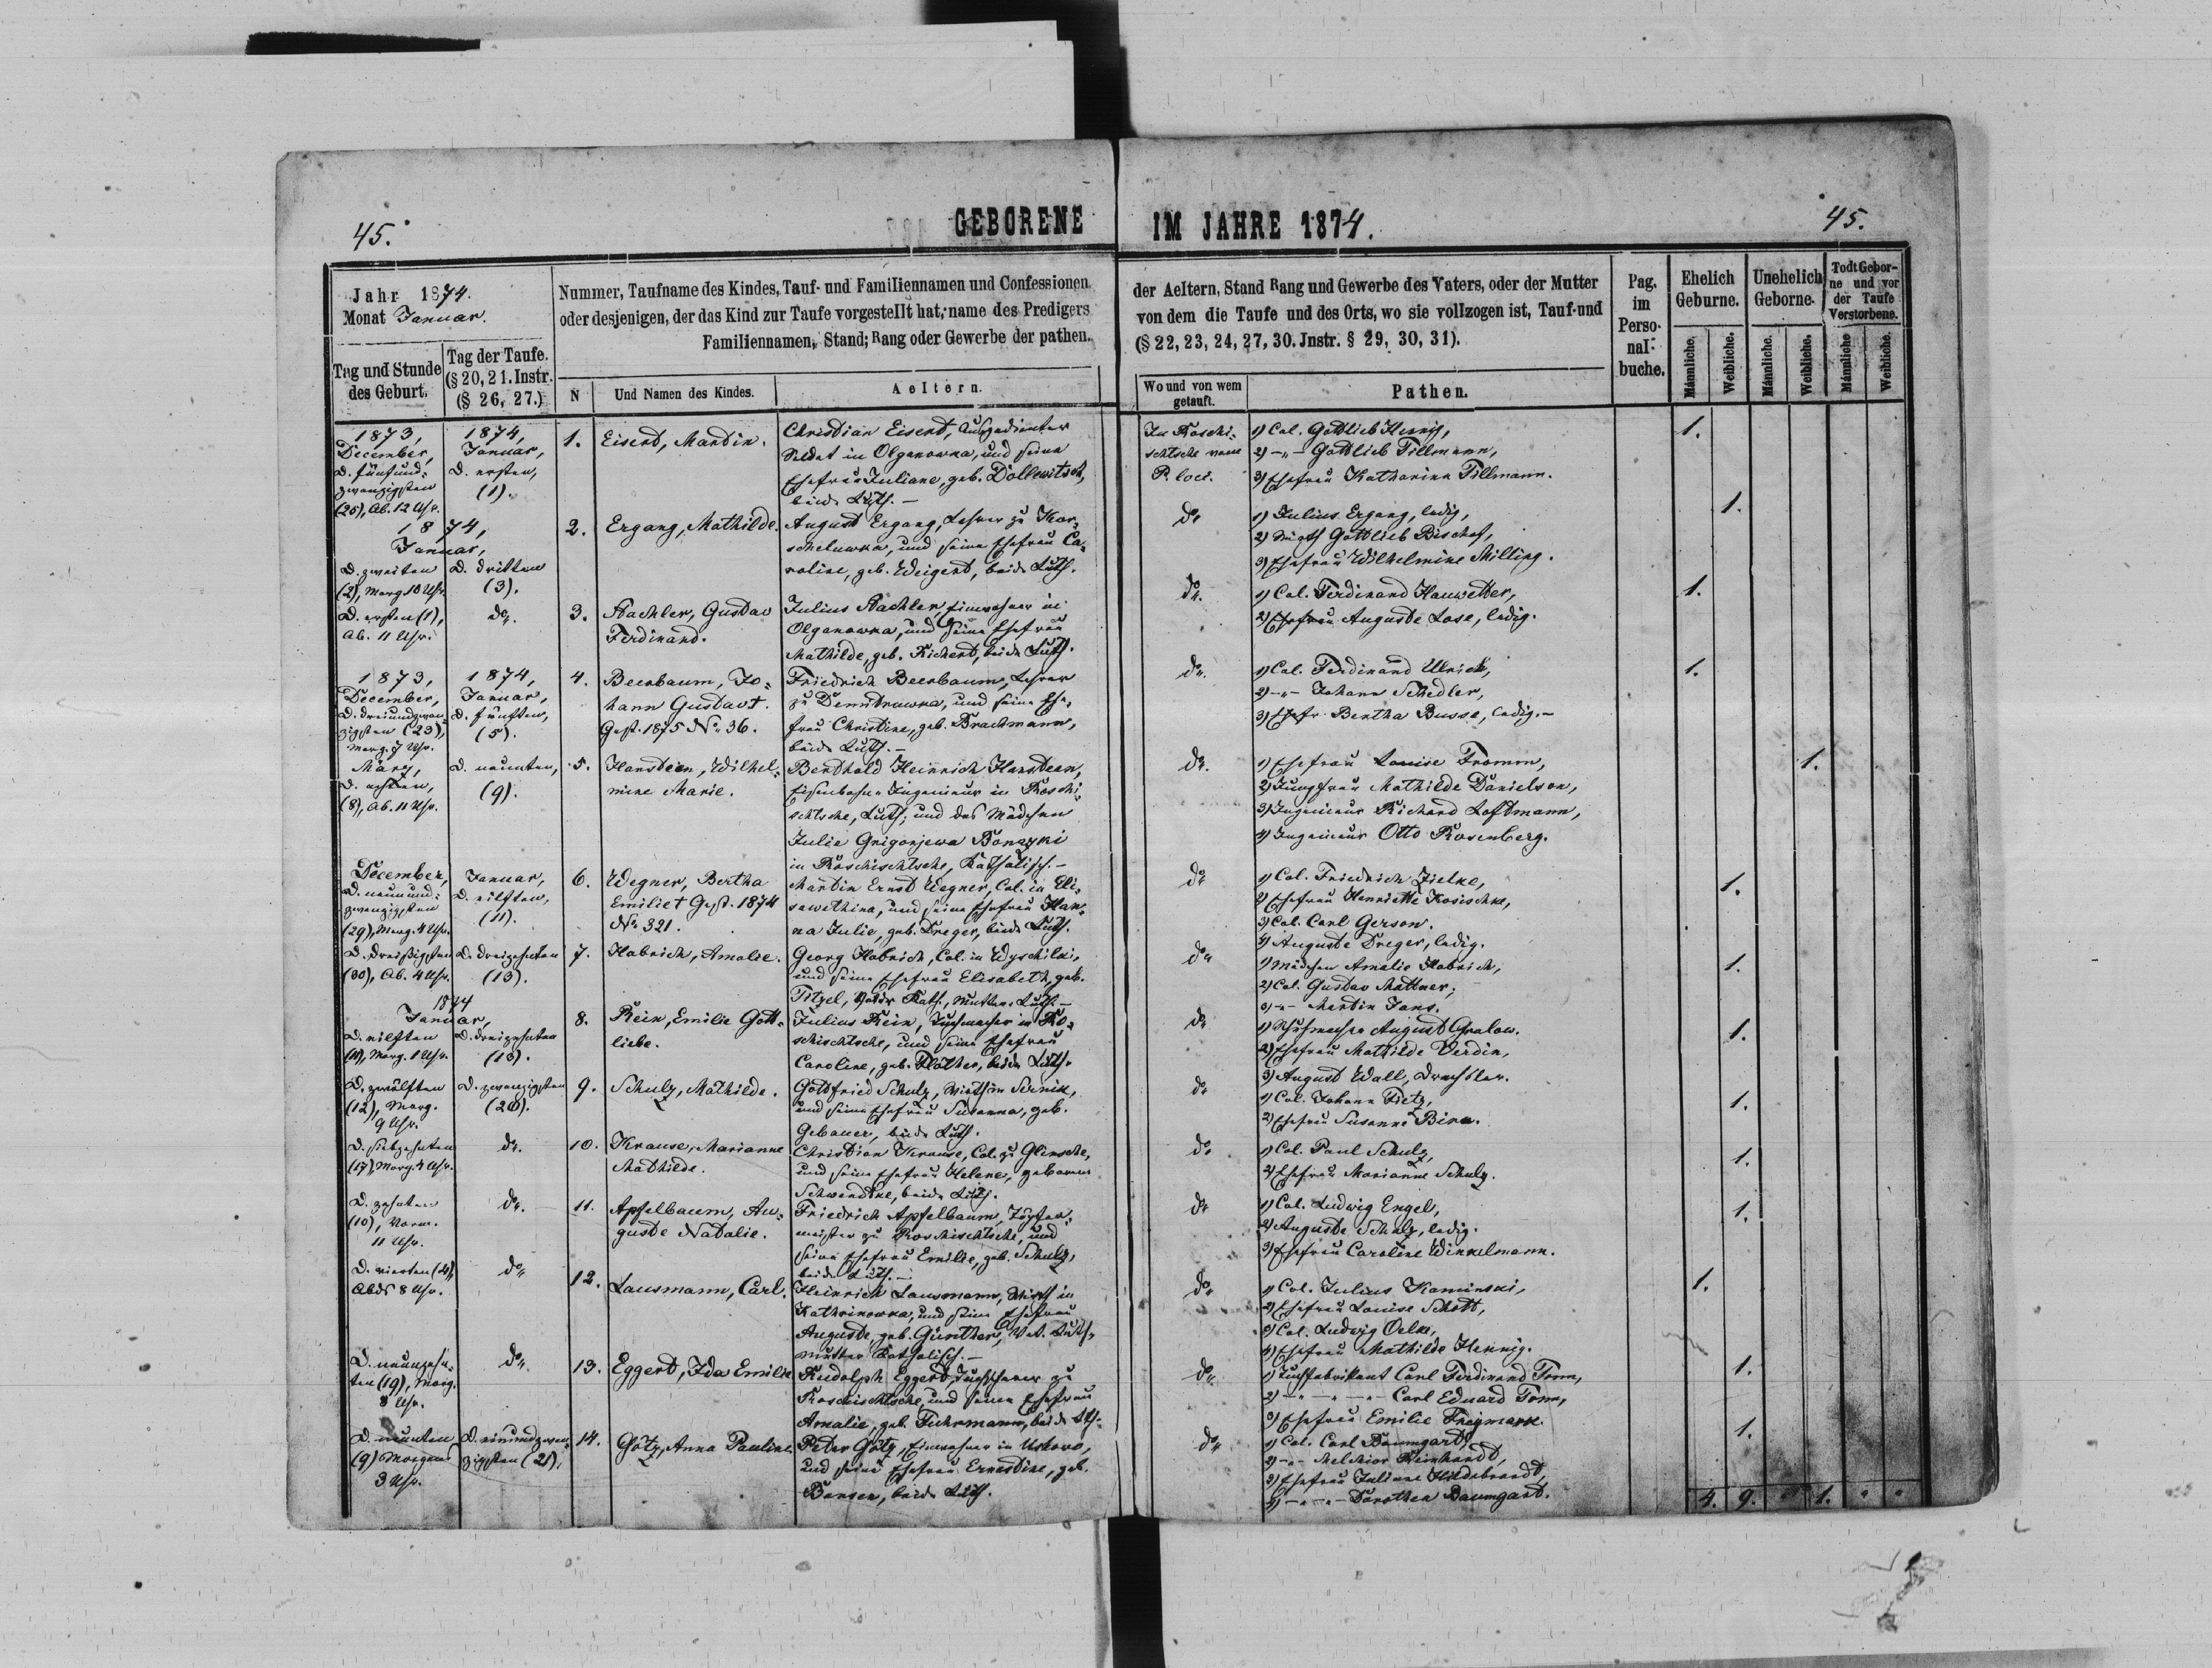 45.
GEBORENE
IM JAHRE 1874.
45.
Jahr 1874.
Monat Januar.
Tag und Stunde
des Geburt.
Tag der Taufe.
(§ 20, 21. Instr.
(§ 26, 27.)
Nummer, Taufname des Kindes, Tauf- und Familiennamen und Confessionen
oder desjenigen, der das Kind zur Taufe vorgestellt hat, name des Predigers
Familiennamen, Stand; Rang oder Gewerbe der pathen.
N
Und Namen des Kindes.
Aeltern.
der Aeltern, Stand Rang und Gewerbe des Vaters, oder der Mutter
von dem die Taufe und des Orts, wo sie vollzogen ist, Tauf-und
(§ 22, 23, 24, 27, 30. Jnstr. § 29, 30, 31).
Wo und von wem
getauft.
Pathen.
Pag.
im
Perso-
nal-
buche.
Ehelich
Geburne.
Unehelich
Geborne.
Todt Gebor-
ne und vor
der Taufe
Verstorbene.
Männliche.
Weibliche.
Männliche.
Weibliche.
Männliche
Weibliche.
1873,
December,
d. fünfund-
zwanzigsten
(25), Ab. 12 Uhr.
1874,
Januar,
d. ersten,
(1).
1.
Eisert, Martin.
Christian Eisert, Ausgedienter
Soldat in Olganowka, und seine
Ehefrau Juliane, geb. Dollewitsch,
beide Luth.-
In Roschi-
schtsche vom
P. loci.
1) Col. Gottlieb
2) -"- Gottlieb Tillmann,
3) Ehefrau Katharina Tillmann.
1.
1874,
Januar,
D. zweiten
(2), Morg. 10 Uhr.
D. dritten
(3).
2.
Ergang, Mathilde.
August Ergang, Lehrer zu Kor-
scheluwka, und seine Ehefrau Ca-
roline, geb. Weigert, beide Luth.
do
1) Julius Ergang, ledig,
2) Wirth Gottlieb Bischof,
3) Ehefrau Wilhelmine Milling.
1.
D. ersten (1),
Ab. 11 Uhr.
do.
3.
Stachler, Gustav
Ferdinand.
Julius Stachler, Einwohner in
Olganowka, und seine Ehefrau
Mathilde, geb. Richert, beide Luth.
do.
1) Col. Ferdinand Hauwetter,
2) Ehefrau Auguste Lose, ledig.
1.
1873,
December,
D. dreiundzwan-
zigsten (23),
Morg. 7 Uhr.
1874,
Januar,
D. fünften,
(5).
4.
Beerbaum, Jo-
hann Gustav†.
Gest. 1875 No 36.
Friedrich Beerbaum, Lehrer
zu Demitrowka, und seine Ehe-
frau Christine, geb. Brachmann,
beide Luth.-
do.
1) Col. Ferdinand Ulrich,
2) -"- Johann Schedler,
3) Ehefr. Bertha Busse, ledig.-
1.
März,
D. achten,
(8), Ab. 11 Uhr.
D. neunten,
(9).
5.
Hansteen, Wilhel-
mine Marie.
Berthold Heinrich Hansteen,
Eisenbahn-Ingenieur in Roschi-
schtsche, Luth; und das Mädchen
Julie Grigorjewa
in Roschischtsche, Katholisch.-
do.
1) Ehefrau Louise Fromm,
2) Jungfrau Mathilde Danielson,
3) Ingenieur Richard Loftmann,
4) Ingenieur Otto Rosenberg.
1.
December,
D. neunund-
zwanzigsten
(29), Morg. 4 Uhr.
Januar,
D. eilften,
(11).
6.
Wegner, Bertha
Emilie† Gest. 1874
No 321.
Martin Ernst Wegner, Col. in Eli-
sawethina, und seine Ehefrau Han-
na Julie, geb. Dreger, beide Luth.
do
1) Col. Friedrich Zielke,
2) Ehefrau Henriette Kosischke,
3) Col. Carl Gerson.
4) Auguste Dreger, ledig.
1.
D. dreißigsten
(30), Ab. 4 Uhr.
D. dreizehnten
(13).
7.
Habrich, Amalie.
Georg Habrich, Col. in Wyschilki,
und seine Ehefrau Elisabeth, geb.
Titzel, Vater Kath., Mutter Luth.-
do
1) Mädchen Amalie Habrich,
2) Col. Gustav Mattner,
3) -"- Martin Jans.
1.
1874
Januar,
D. eilften
(11), Morg. 1 Uhr.
D. dreizehnten
(13).
8.
Rein, Emilie Gott-
liebe.
Julius Rein, Tuchmacher in Ro-
schischtsche, und seine Ehefrau
Caroline, geb. Flöther, beide Luth.
do
1) Schuhmacher August Gralow.
2) Ehefrau Mathilde Verdin,
3) August Wall, Drechsler.
1.
D. zwölften
(12), Morg.
9 Uhr.
D. zwanzigsten
(20).
9.
Schulz, Mathilde.
Gottfried Schulz, Wirth in Sernik,
und seine Ehefrau Susanna, geb.
Gebauer, beide Luth.
do
1) Col. Johann Fietz,
2) Ehefrau Susanne Birn.
1.
D. siebzehnten
(17), Morg. 4 Uhr.
do.
10.
Krause, Marianne
Mathilde.
Christian Krause, Col. zu Glinsche,
und seine Ehefrau Helene, geborene
Schwendtke, beide Luth.
do
1) Col. Paul Schulz,
2) Ehefrau Marianne Schulz.
1.
D. zehnten
(10), Vorm.
11 Uhr.
do.
11.
Apfelbaum, Au-
guste Natalie.
Friedrich Apfelbaum, Töpfer-
meister zu Roschischtsche, und
seine Ehefrau Emilie, geb. Schulz,
beide Luth.-
do
1) Col. Ludwig Engel,
2) Auguste Schulz, ledig.
3) Ehefrau Caroline Winkelmann.
1.
D. vierten (4),
Abds 8 Uhr.
do
12.
Lausmann, Carl.
Heinrich Lausmann, Wirth in
Kathrinowka, und seine Ehefrau
Auguste, geb. Günther, Vat. Luth.
Mutter Katholisch.-
do
1) Col. Julius Kaminski,
2) Ehefrau Louise Schott,
3) Col. Ludwig Oelke,
4) Ehefrau Mathilde Hennig.
1.
D. neunzehn-
ten (19), Morg.
8 Uhr.
do.
13.
Eggert, Ida Emilie
Rudolph Eggert, Tuchscherer zu
Roschischtsche, und seine Ehefrau
Amalie, geb. Fuhrmann, beide Luth.
do
1) Tuchfabrikant Carl Ferdinand Tonn,
2) -"- -"- Carl Eduard Tonn,
3) Ehefrau Emilie Freymark.
1.
D. neunten
(9) Morgens
3 Uhr.
D. einundzwan-
zigsten (21),
14.
Götz, Anna Pauline
Peter Götz, Einwohner in Uskowo,
und seine Ehefrau Ernestine, geb.
Bonsen, beide Luth.
do
1) Col. Carl Baumgart,
2) -"- Melchior Reinhardt,
3) Ehefrau Juliane Hildebrandt,
4) -"- -"- Dorothea Baumgart.
1.
4. 9. " 1. " "